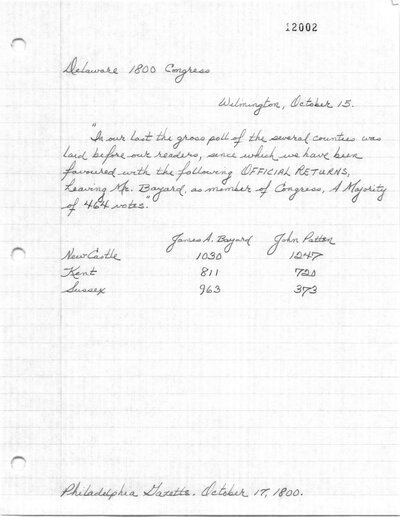 12002
Delaware 1800 Congress
Wilmington, October 15.
"In our last the gross poll of the several counties was
laid before our readers, since which we have been
favoured with the following OFFICIAL RETURNS,
leaving Mr. Bayard, as member of Congress, A Majority
of 464 votes."
James A. Bayard John Patten
New Castle 1030 1247
Kent 811 720
Sussex 963 373
Philadelphia Gazette. October 17, 1800.